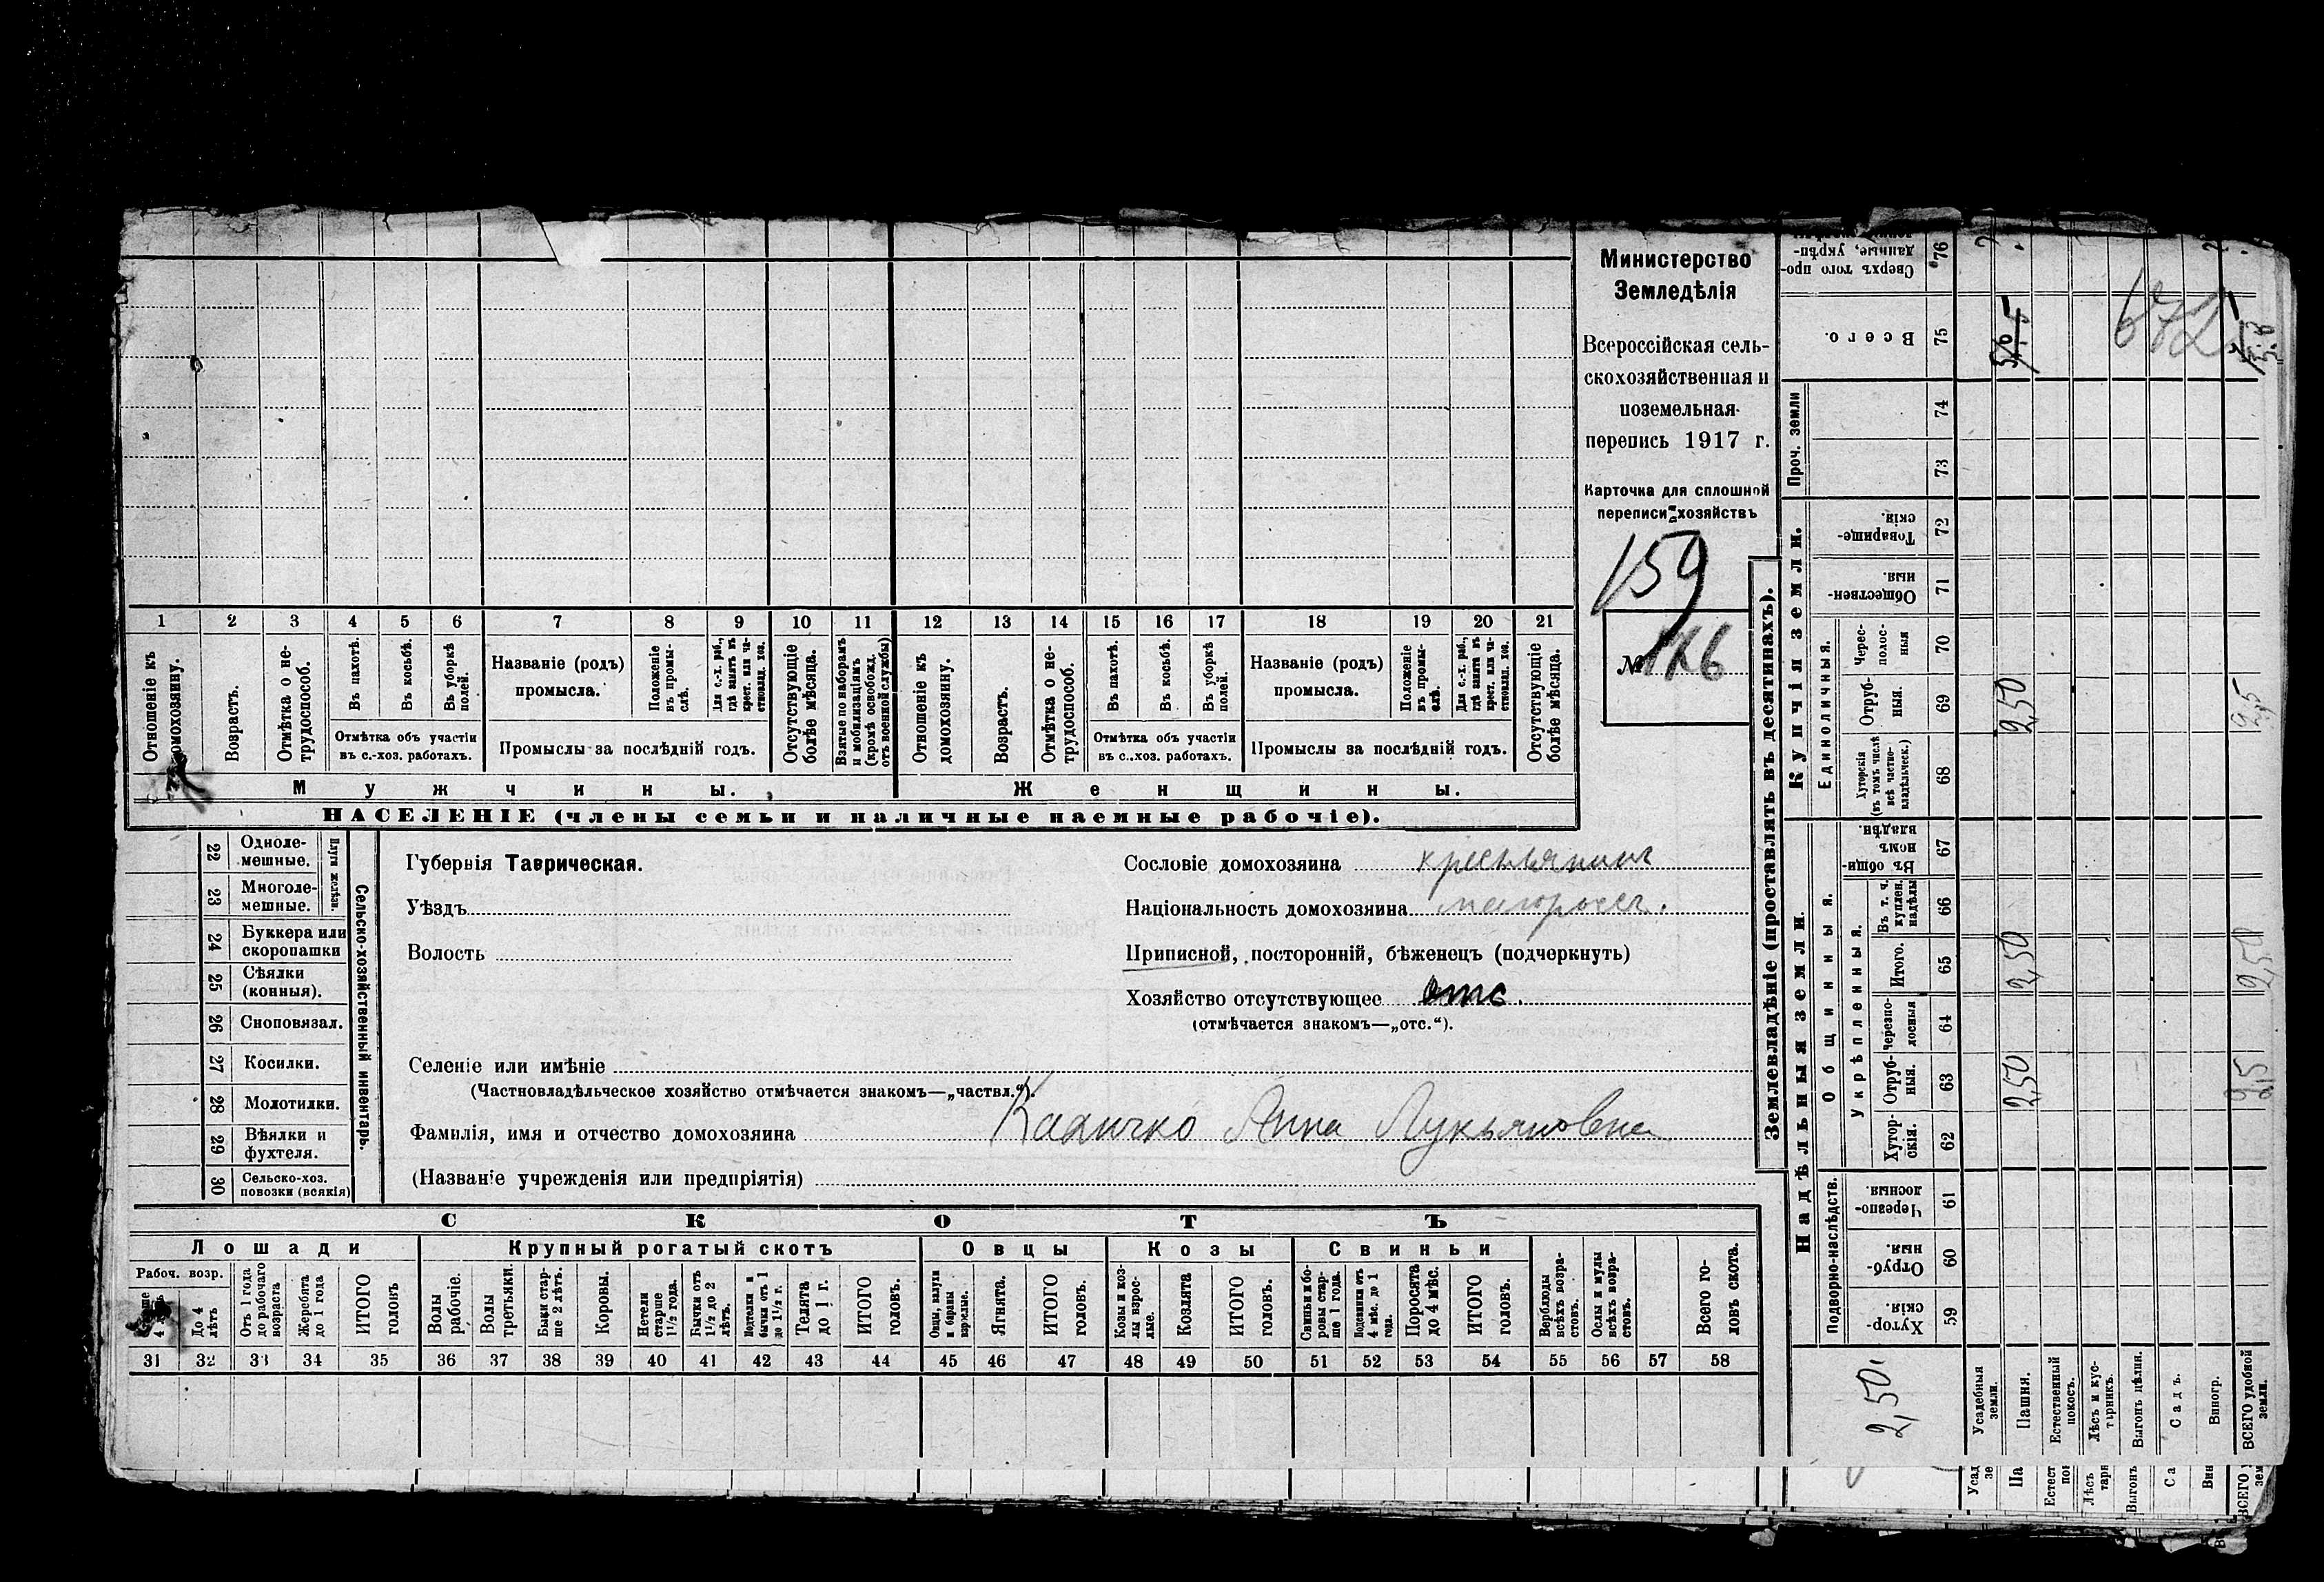 Министерство
Земледѣлія
Всероссійская сель-
скохозяйственная и
поземельная
перепись 1917 г.
Карточка для сплошной
переписи хозяйствъ
159
№ 176
1 2 3 4 5 6 7 8 9 10 11 12 13 14 15 16 17 18 19 20 21
Отношеніе къ домохозяину.
Возрастъ.
Отмѣтка о не-трудоспособ.
Въ пахотѣ.
Въ косьбѣ.
Въ уборкѣ полей.
Отмѣтка объ участіи
въ с.-хоз. работахъ.
Названіе (родъ)
промысла.
Положеніе въ промы-слѣ.
Для с.-х. раб., гдѣ занятъ въ крест. или ча-стновлад. хоз.
Промыслы за послѣдній годъ.
Отсутствующіе болѣе мѣсяца.
Взятые по наборамъ и мобилизаціямъ (кромѣ освобожд. отъ военной службы)
Отношеніе къ домохозяину.
Возрастъ.
Отмѣтка о не-трудоспособ.
Въ пахотѣ.
Въ косьбѣ.
Въ уборкѣ полей.
Отмѣтка объ участіи
въ с.-хоз. работахъ.
Названіе (родъ)
промысла.
Положеніе въ промы-слѣ.
Для с.-х. раб., гдѣ занятъ въ крест. или ча-стновлад. хоз.
Промыслы за послѣдній годъ.
Отсутствующіе болѣе мѣсяца.
Мужчины.
Женщины.
НАСЕЛЕНІЕ (члены семьи и наличные наемные рабочіе).
Сельско-хозяйственный инвентарь.
Плуги желѣзн.
22 Одноле-мешные.
23 Многоле-мешные.
24 Буккера или скоропашки
25 Сѣялки (конныя).
26 Сноповязал.
27 Косилки.
28 Молотилки.
29 Вѣялки и фухтеля.
30 Сельско-хоз. повозки (всякія)
Губернія Таврическая.
Уѣздъ
Волость
Сословіе домохозяина крестьянинъ
Національность домохозяина малороссъ.
Приписной, посторонній, бѣженецъ (подчеркнуть)
Хозяйство отсутствующее отс.
(отмѣчается знакомъ—„отс.“).
Селеніе или имѣніе
(Частновладѣльческое хозяйство отмѣчается знакомъ—„частвл.“).
Фамилія, имя и отчество домохозяина Кадичко Анна Лукьяновна
(Названіе учрежденія или предпріятія)
СКОТЪ
Лошади
Крупный рогатый скотъ
Овцы
Козы
Свиньи
Рабоч. возр.
До 4 лѣтъ
Отъ 1 года до рабочаго возраста
Жеребята до 1 года
ИТОГО головъ
Волы рабочіе.
Волы третьяки.
Быки стар-ше 2 лѣтъ.
Коровы.
Нетели старше 1 1/2 года.
Бычки отъ 1 1/2 до 2 лѣтъ.
Подтелки и бычки отъ 1 до 1 1/2 г.
Телята до 1 г.
ИТОГО головъ.
Овцы, валухи и бараны взрослые.
Ягнята.
ИТОГО головъ.
Козы и коз-лы взрос-лые.
Козлята
ИТОГО головъ.
Свиньи и бо-ровы стар-ше 1 года.
Подсвинки отъ 4 мѣс. до 1 года.
Поросята до 4 мѣс.
ИТОГО головъ.
Верблюды всѣхъ возра-стовъ.
Ослы и мулы всѣхъ возра-стовъ.
Всего го-ловъ скота.
31 32 33 34 35 36 37 38 39 40 41 42 43 44 45 46 47 48 49 50 51 52 53 54 55 56 57 58
Землевладѣніе (проставлять въ десятинахъ).
Надѣльныя земли.
Купчія земли.
Проч. земли
Подворно-наслѣдств.
Общинныя.
Укрѣпленныя.
Единоличныя.
59 Хутор-скія.
60 Отруб-ныя.
61 Черезпо-лосныя.
62 Хутор-скія.
63 Отруб-ныя.
64 Черезпо-лосныя
65 Итого.
66 Въ т. ч. куплен. надѣлы
67 Въ общи-номъ владѣн.
68 Хуторскія (въ томъ числѣ всѣ частно-владѣльческ.)
69 Отруб-ныя.
70 Черес-полос-ныя
71 Обществен-ныя.
72 Товарище-скія.
73
74
75 Всего.
76 Сверхъ того про-данные, укрѣп-
Усадебныя земли.
Пашня.
2,50 2,50 2,50
Естественный покосъ.
Лѣсъ и кус-тарникъ.
Выгонъ цѣлин.
Садъ.
Виногр.
ВСЕГО удобной земли.
2,5 2,50 2,5
2,50
672